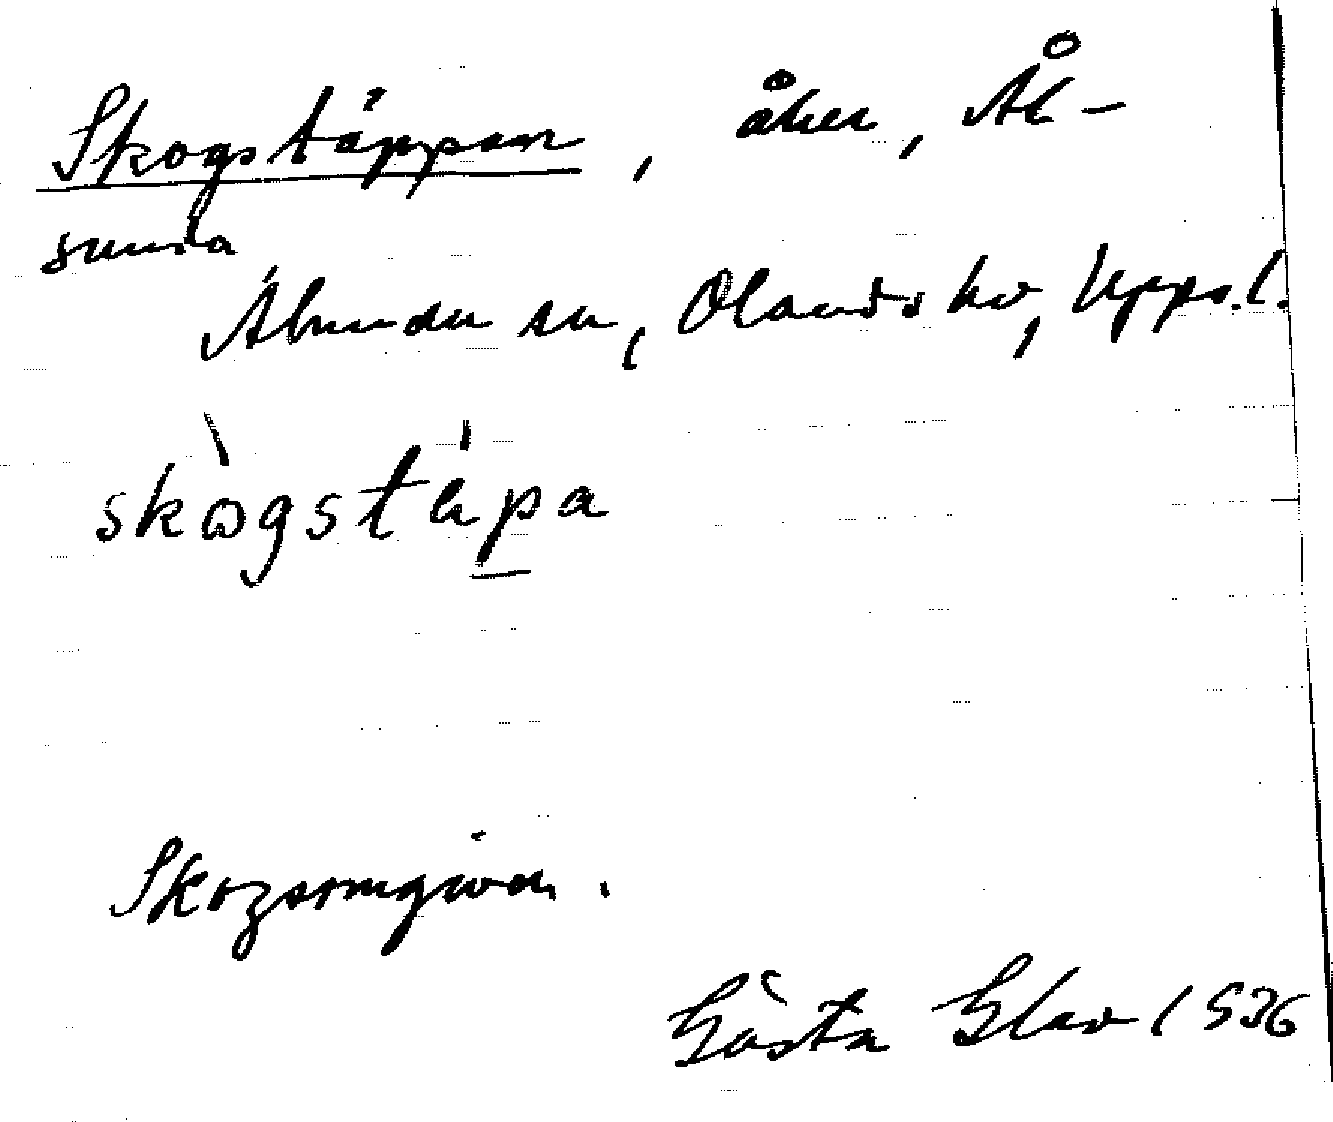 Skogstäppan, åker, Ål-
sunda
Alunda sn, Olands hd, Upps. l.
skògstäpa
Skogsomgiven.
Gösta Glav 1936